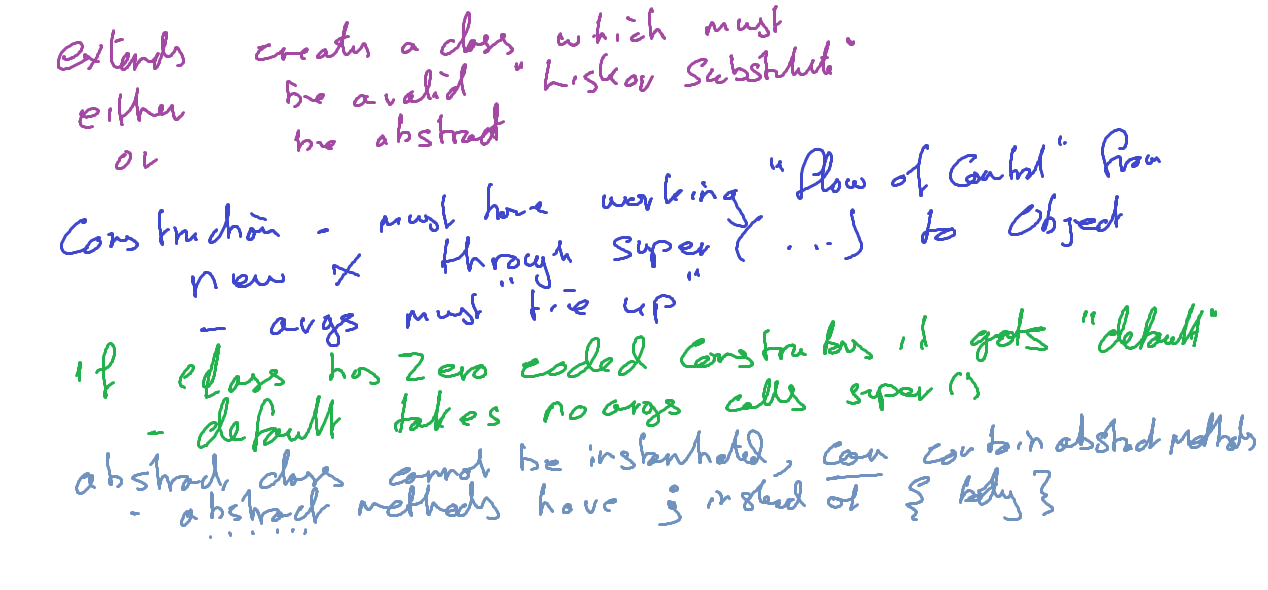 extends creates a class which must
either be a valid "Liskov Substitute"
or be abstract
Construction - must have working "flow of control" from
new X through super(...) to Object
- args must "tie up"
if class has zero coded constructors it gets "default"
- default takes no args calls super()
abstract class cannot be instantiated, can contain abstract methods
- abstract methods have ; instead of { body }